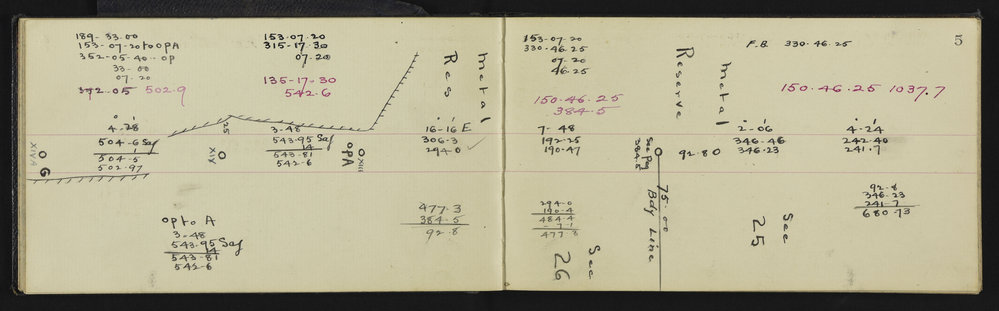 189-33.00
153-07-20 to OPA
352-05-40-OP
33-00
07-20
372.05 502.9
° '
4-28
504-6 Sag
1
504-5
502-97
XIVA
O G
25
XIV
O
153.07.20
315-17-30
07.20
135-17-30
542.6
3-48
543.95 Sag
14
543-81
542-6
O XIII
OPA
op to A
3-48
543.95 Sag
14
543-81
542-6
Metal
Res
° '
16-16 E
306.3
294.0 ✓
477.3
384.5
92.8
5
153-07-20
330-46.25
07-20
46.25
150.46.25
384.5
7-48
192-25
190.47
294.0
190.4
484.4
-71
477.3
See
26
Reserve
Metal
See Pag
384.5
O 92.80
75.00
Bdy Line
F.B 330.46.25
150.46.25 1037.7
° '
2-06
346-46
346.23
° '
4-24
242-40
241.7
See
25
92.8
346.23
241.7
680.73